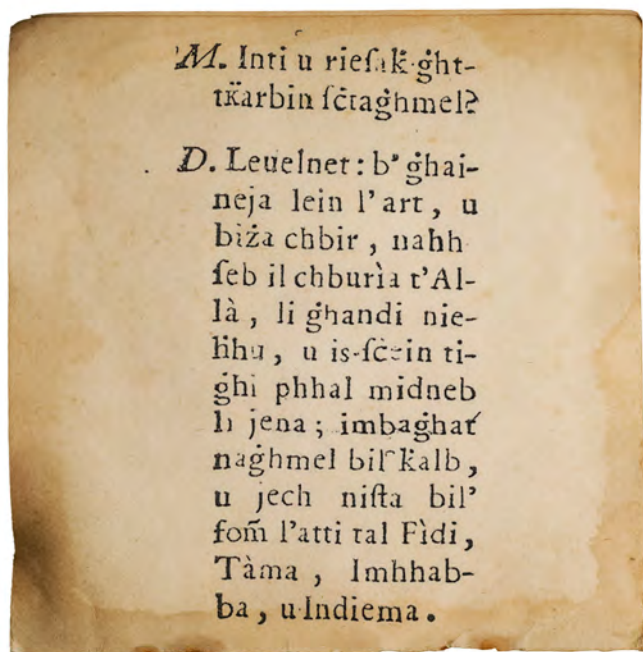 M. Inti u rieſak̇ ġht-
tk̇arbin ſċtaġhmel?
D. Leuelnet: b' ġhai-
neja lein l'art, u
biża chbir, nahh
ſeb il chburìa t'Al-
là, li ġhandi nie-
ħhu, u is-ſċein ti-
ġhi phhal midneb
li jena; imbaġhat
naġhmel bil' k̇alb,
u jech niſta bil'
fom̃ l'atti tal Fìdi,
Tàma, Imhhab-
ba, u Indiema.